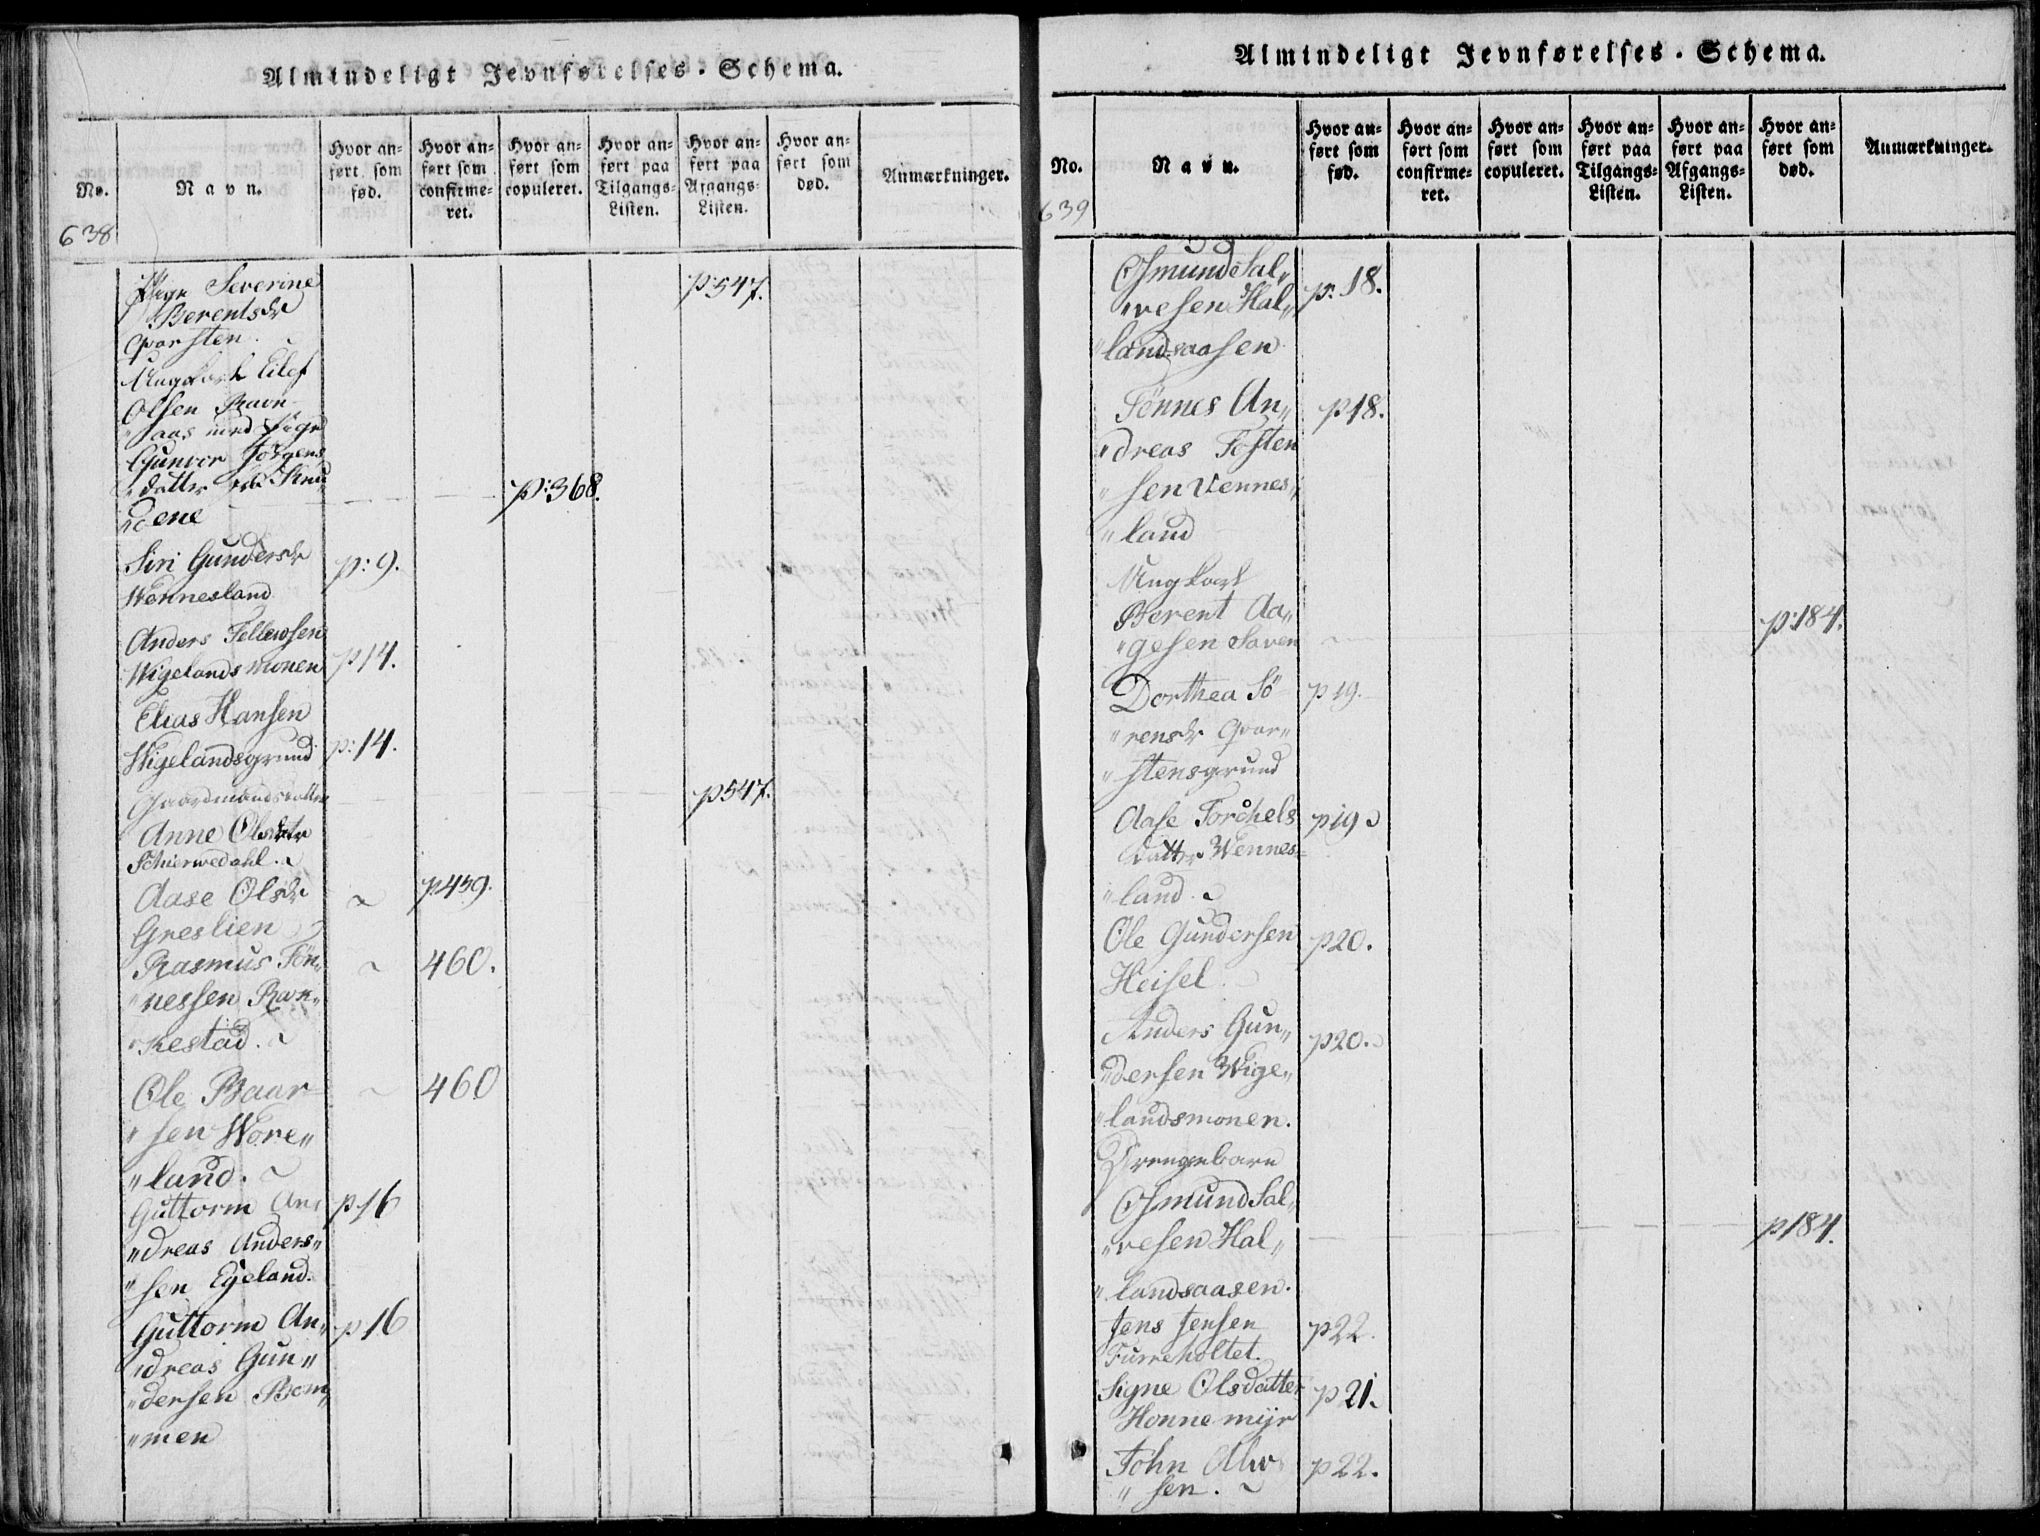 Almindeligt Jevnførelses-Schema.
No.
Navn.
Hvor anført som fød.
Hvor anført som confirmeret.
Hvor anført som copuleret.
Hvor anført paa Tilgangs-Listen.
Hvor anført paa Afgangs-Listen.
Hvor anført som død.
Anmærkninger.
638
Pige Severine p:547.
Berentsdr
Qvarsten.
Ungkarl Eilef
Olsen Ravn
"aas med Pige
Gunvor Jörgens
"datter fra Knu
"dene p:368.
Siri Gundersdr p:9.
Wennesland
Anders Tellewsen
Wigelandsmonen p14.
Elias Hansen
Wigelandsgrund p:14.
Gaardmandsdatter p547.
Anne Olsdatr
Schierwedahl.
Aase Olsdr p459.
Greslien
Rasmus Tön" 460.
"nessen Ran"
"kestad.
Ole Baar 460
"sen Wore"
"land.
Guttorm An p16
"dreas Anders"
"sen Eyeland.
Guttorm An" p16
"dreas Gun"
"dersen Bom"
"men
Almindeligt Jevnførelses-Schema.
No.
Navn.
Hvor anført som fød.
Hvor anført som confirmeret.
Hvor anført som copuleret.
Hvor anført paa Tilgangs-Listen.
Hvor anført paa Afgangs-Listen.
Hvor anført som død.
Anmærkninger.
639
Osmund Sal" p:18.
"vesen Hal"
"landsaasen
Tönnes An" p18.
"dreas Tosten
"sen Vennes"
"land
Ungkarl
Berent Aa" p:184.
"gesen Saven
Dorthea Sö p19.
"rensdr Qvar"
"stensgrund
Aase Torchels p19
datter Wennes=
"land.
Ole Gundersen p20.
Heisel.
Anders Gun" p20.
"dersen Wige"
"landsmonen.
Drengebarn
Osmund Sal"
"vesen Hal" p184.
"landsaasen.
Jens Jensen p22.
Furreholtet.
Signe Olsdatter p21.
Honnemyr
John Alw p22.
"sen.